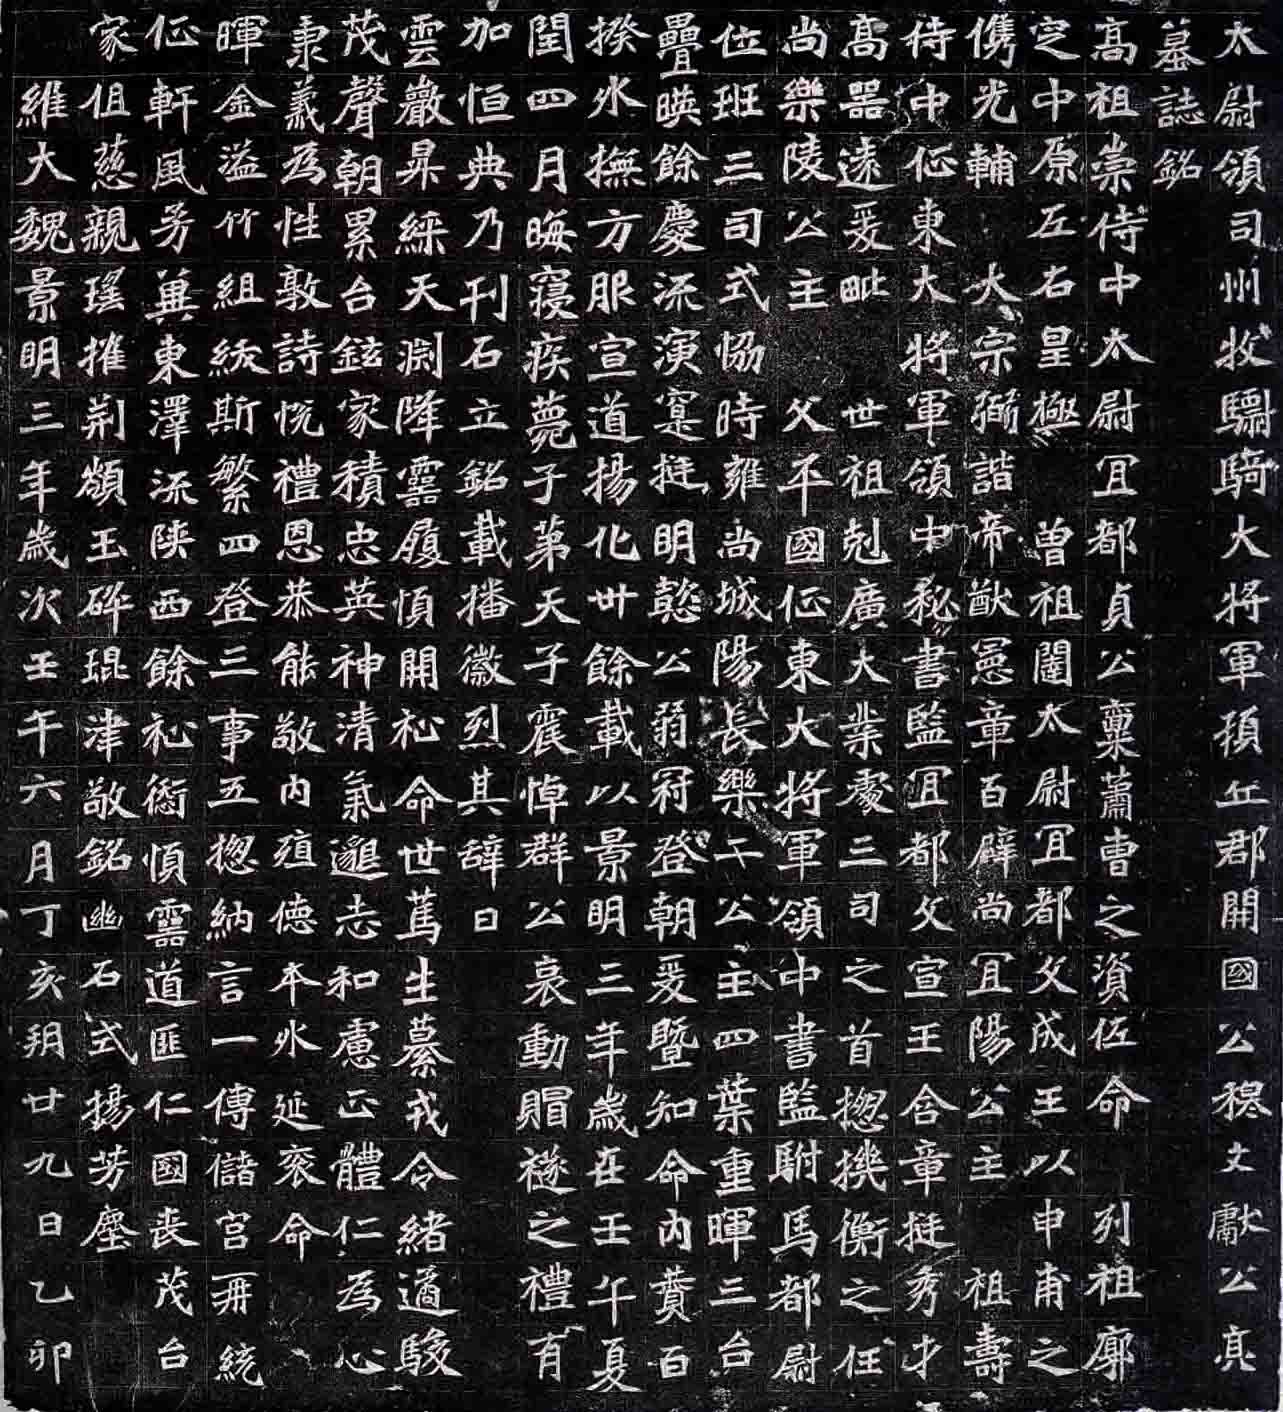 太尉領司州牧驃騎大將軍頓丘郡開國公穆文獻公亮
墓誌銘
高祖崇侍中太尉冝都貞公稟蕭曹之資佐命　列祖廓
定中原左右皇極　曾祖闥太尉冝都文成王以申甫之
儁光輔　大宗弼諧帝猷憲章百辟尚冝陽公主　祖壽
侍中征東大將軍領中秘書監冝都文宣王含章挺秀才
高器遠爰毗　世祖剋廣大業處三司之首揔機衡之任
尚樂陵公主　父平國征東大將軍領中書監駙馬都尉
位班三司式協時雍尚城陽長樂二公主四葉重暉三台
疊暎餘慶流演寔挺明懿公弱冠登朝爰暨知命內贊百
揆外撫方服宣道揚化卅餘載以景明三年歲在壬午夏
閏四月晦寢疾薨子第天子震悼群公哀動賵禭之禮有
加恒典乃刊石立銘載播徽烈其辞曰
雲巖昇綵天渕降靈履順開祉命世篤生綦戎令緒遹駿
茂聲朝累台鉉家積忠英神清氣邈志和慮正體仁為心
秉義為性敦詩悅禮恩恭能敬內殖德本外延袞命
暉金溢竹組紱斯繁四登三事五揔納言一傅儲宮再統
征軒風芳冀東澤流陝西餘祉銜順靈道匪仁國喪茂台
家徂慈親瑤摧荊頹玉碎琨津敬銘幽石式揚芳塵
維大魏景明三年歲次壬午六月丁亥朔廿九日乙卯